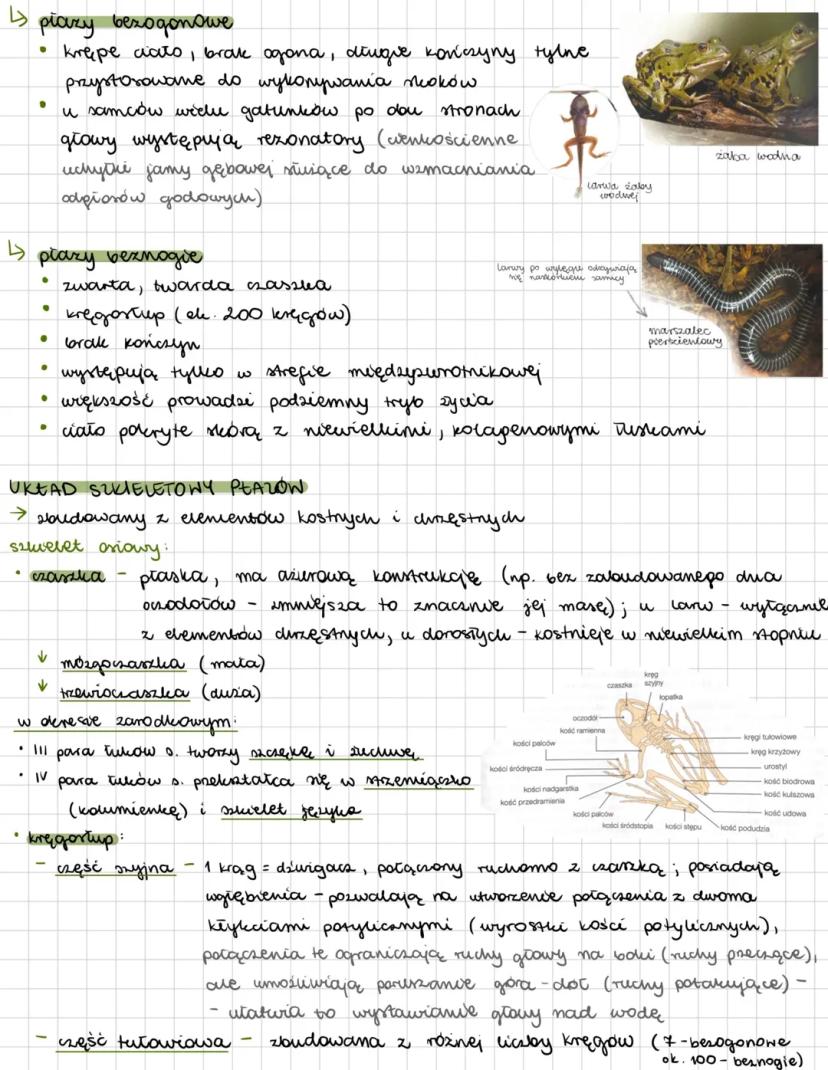 ↳ płazy bezogonowe
• krępe ciało, brak ogona, długie kończyny tylne
przystosowane do wykonywania skoków
• u samców wielu gatunków po obu stronach
głowy występują rezonatory (cienkościenne
uchyłki jamy gębowej służące do wzmacniania
odgłosów godowych)
żaba wodna
larwa żaby
wodnej
↳ płazy beznogie
• zwarta, twarda czaszka
• kręgosłup (ok. 200 kręgów)
• brak kończyn
• występują tylko w strefie międzyzwrotnikowej
• większość prowadzi podziemny tryb życia
• ciało pokryte skórą z niewielkimi, kolagenowymi łuskami
larwy po wylęgu odżywiają
się naskórkiem samicy
marszalec
pierścieniowy
UKŁAD SZKIELETOWY PŁAZÓW
→ zbudowany z elementów kostnych i chrzęstnych
szkielet osiowy:
• czaszka - płaska, ma ażurową konstrukcję (np. bez zabudowanego dna
oczodołów - zmniejsza to znacznie jej masę); u larw - wyłącznie
z elementów chrzęstnych, u dorosłych - kostnieje w niewielkim stopniu
↓ mózgoczaszka (mała)
↓ trzewioczaszka (duża)
w okresie zarodkowym:
• III para łuków s. tworzy szczękę i żuchwę
• IV para łuków s. przekształca się w strzemiączko
(kolumienkę) i szkielet języka
czaszka
kręg
szyjny
łopatka
oczodół
kość ramienna
kości palców
kości śródręcza
kości nadgarstka
kość przedramienia
kości palców
kości śródstopia
kości stępu
kość podudzia
kręgi tułowiowe
kręg krzyżowy
urostyl
kość biodrowa
kość kulszowa
kość udowa
• kręgosłup:
- część szyjna - 1 krąg = dźwigacz, połączony ruchomo z czaszką; posiadają
wgłębienia - pozwalają na utworzenie połączenia z dwoma
kłykciami potylicznymi (wyrostki kości potylicznych),
połączenia te ograniczają ruchy głowy na boki (ruchy przeczące),
ale umożliwiają poruszanie góra-dół (ruchy potakujące) -
- ułatwia to wystawianie głowy nad wodę
- część tułowiowa - zbudowana z różnej liczby kręgów (7-bezogonowe
ok. 100 - beznogie)